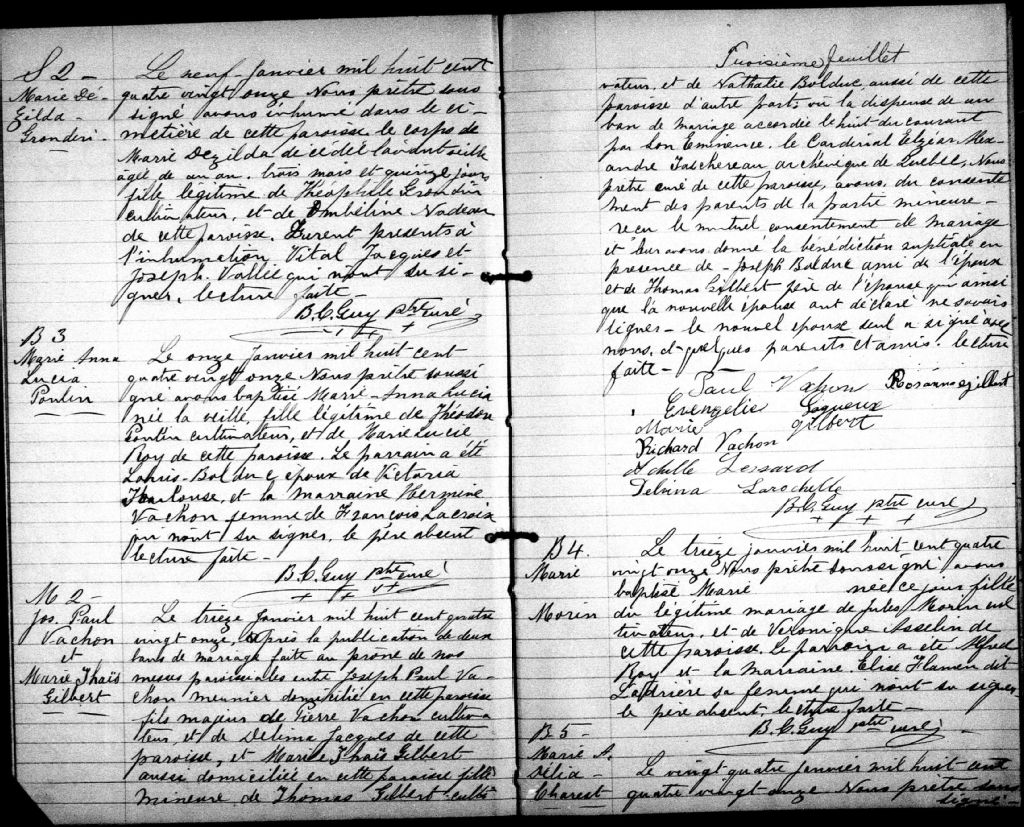 S 2 -
Marie Dé-
zilda -
Grondin.
Le neuf Janvier mil huit cent
quatre vingt onze Nous prêtre sous
signé avons inhumé dans le ci-
metière de cette paroisse le corps de
Marie Dezilda décédée l'avant veille
agée de un an, trois mois et quinze jours
fille légitime de Théophile Grondin
cultivateur, et de Ombéline Nadeau
de cette paroisse. Furent présents à
l'inhumation Vital Jacques et
Joseph Vallée qui n'ont su si-
gner. lecture faite -
B. C. Guy ptre curé
B 3
Marie Anna
Lucia
Poulin
Le onze Janvier mil huit cent
quatre vingt onze Nous prêtre soussi
gné avons baptisé Marie-Anna Lucia
née la veille, fille légitime de Théodore
Poulin cultivateur, et de Marie Lucie
Roy de cette paroisse. Le parrain a été
Louis-Bolduc époux de Victoria
Toulouse, et la marraine Hermine
Vachon femme de François Lacroix
qui n'ont su signer, le père absent
lecture faite -
B. C. Guy ptre curé
M 2 -
Jos. Paul
Vachon
et
Marie Thaïs
Gilbert
Le trieze Janvier mil huit cent quatre
vingt onze, après la publication de deux
bans de mariage faite au prône de nos
messes paroissiales entre Joseph Paul Va-
chon meunier domicilié en cette paroisse
fils majeur de Pierre Vachon cultiva
teur, et de Delima Jacques de cette
paroisse, et Marie Thaïs Gilbert
aussi domiciliée en cette paroisse fille
mineure de Thomas Gilbert culti
Troisième feuillet
vateur, et de Nathalie Bolduc aussi de cette
paroisse d'autre part; vu la dispense de un
ban de mariage accordée le huit du courant
par Son Eminence le Cardinal Elzéar Alex-
andre Taschereau archevêque de Québec, Nous
prêtre curé de cette paroisse, avons, du consente
ment des parents de la partie mineure -
reçu le mutuel consentement de mariage
et leur avons donné la bénédiction nuptiale en
présence de - Joseph Bolduc ami de l'époux
et de Thomas Gilbert père de l'épouse qui ainsi
que la nouvelle épouse ont déclaré ne savoir
signer - le nouvel époux seul a signé avec
nous, et quelques parents et amis. lecture
faite -
Paul Vachon Rosanna gilbert
Evengelie Lagueux
Marie gilbert
Richard Vachon
Achille Lessard
Delvina Larochelle
B. C. Guy ptre curé
B 4.
Marie
Morin
Le trieze janvier mil huit cent quatre
vingt onze Nous prêtre soussigné avons
baptisé Marie née ce jour fille
du légitime mariage de Jules Morin cul
tivateur, et de Veronique Asselin de
cette paroisse. Le parrain a été Alfred
Roy et la marraine Elise Flamen dit
Laferrière sa femme qui n'ont su signer
le père absent, lecture faite -
B. C. Guy ptre curé
B 5 -
Marie S.
Délia -
Charest
Le vingt quatre janvier mil huit cent
quatre vingt onze Nous prêtre sous
signé -